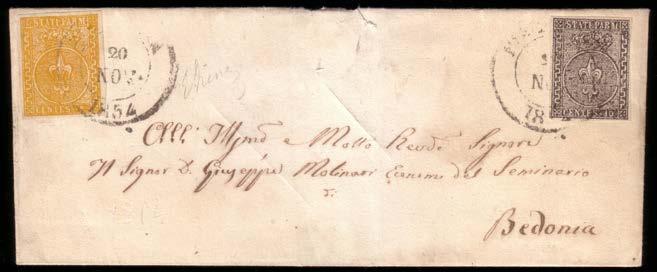 STATI PARM.
CENTES. 5
20
NOV.
1854
STATI PARM.
CENTES. 10
18
All' Illmo e Molto Revdo Signore
Il Signor D. Giuseppe Molinari Econemo del Seminario
di
Bedonia